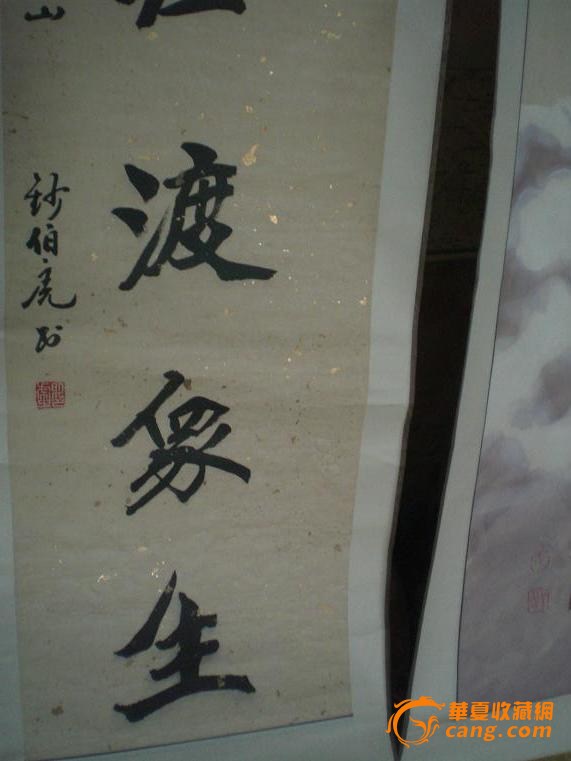 渡衆生
山
鈔伯虎
華夏收藏網
cang.com